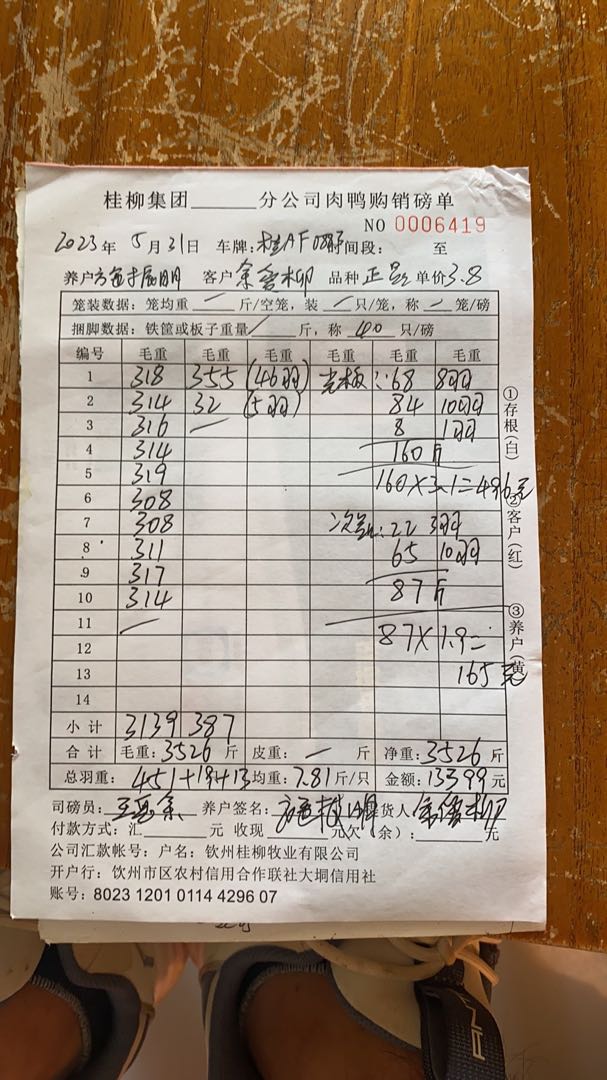 桂柳集团______分公司肉鸭购销磅单
NO 0006419
2023年 5月31日 车牌:桂AF 时间段: 至
养户 客户 余 柳 品种 正品 单价3.8
笼装数据:笼均重 — 斤/空笼,装 — 只/笼,称 — 笼/磅
捆脚数据:铁筐或板子重量 / 斤,称 40 只/磅
编号 毛重 毛重 毛重 毛重 毛重 毛重
1 318 355 (46羽) 光板: 68 8羽
2 314 32 (5羽) 84 10羽
3 316 — 8 1羽
4 314 160斤
5 319 160×3.1=496元
6 308
7 308 次品: 22 3羽
8 311 65 10羽
9 317 87斤
10 314
11 —
12 87×1.9=
13 165元
14
小计 3139 387
合计 毛重:3526斤 皮重: — 斤 净重:3526斤
总羽重: 451+19+13 均重:7.81斤/只 金额:13399元
司磅员: 养户签名: 货人
付款方式:汇______元 收现______元欠(余):______元
公司汇款帐号:户名:钦州桂柳牧业有限公司
开户行:钦州市区农村信用合作联社大垌信用社
账号:8023 1201 0114 4296 07
①存根(白)
②客户(红)
③养户(黄